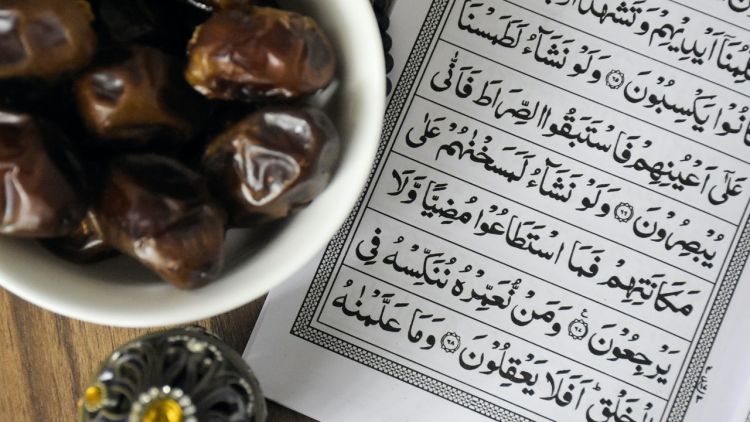 اَيْدِيْهِمْ وَتَشْهَدُ
كَانُوْا يَكْسِبُوْنَ ۝۶۵ وَلَوْ نَشَآءُ لَطَمَسْنَا
عَلٰٓى اَعْيُنِهِمْ فَاسْتَبَقُوا الصِّرَاطَ فَاَنّٰى
يُبْصِرُوْنَ ۝۶۶ وَلَوْ نَشَآءُ لَمَسَخْنٰهُمْ عَلٰى
مَكَانَتِهِمْ فَمَا اسْتَطَاعُوْا مُضِيًّا وَّلَا
يَرْجِعُوْنَ ۝۶۷ وَمَنْ نُّعَمِّرْهُ نُنَكِّسْهُ فِى
الْخَلْقِ ؕ اَفَلَا يَعْقِلُوْنَ ۝۶۸ وَمَا عَلَّمْنٰهُ